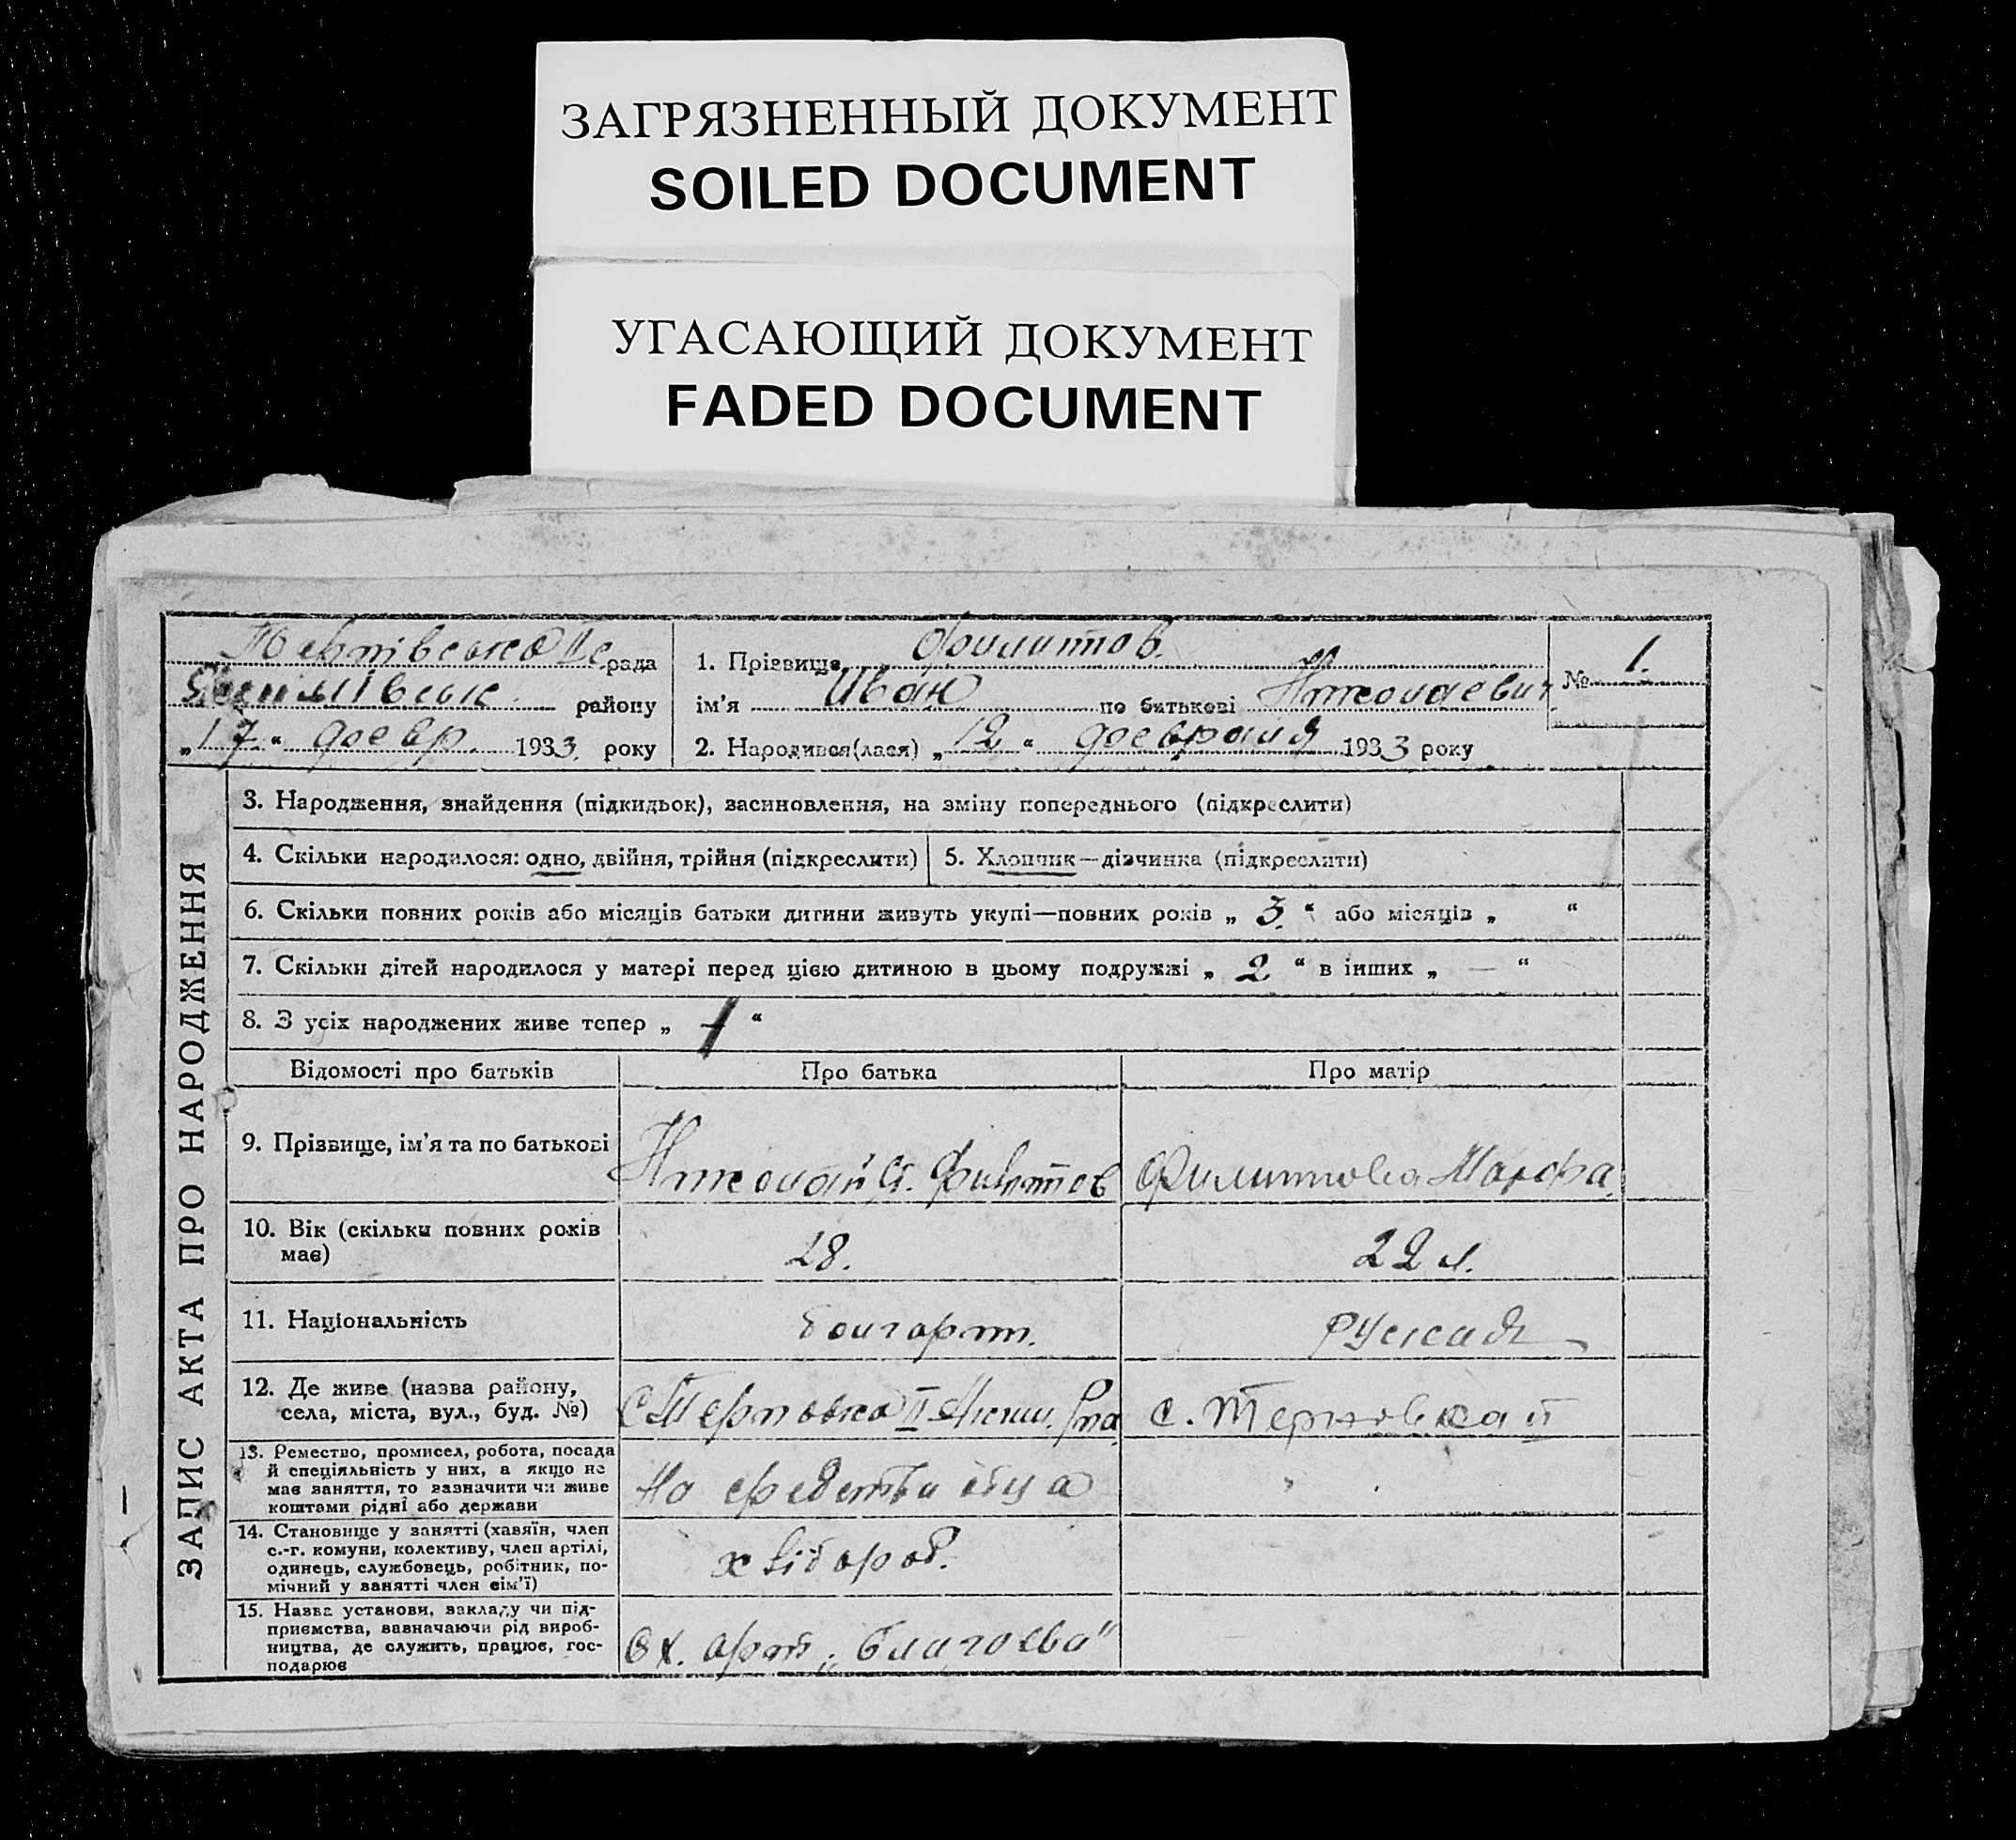 ЗАГРЯЗНЕННЫЙ ДОКУМЕНТ
SOILED DOCUMENT
УГАСАЮЩИЙ ДОКУМЕНТ
FADED DOCUMENT
рада
району
„17“ февр. 1933 року
1. Прізвище Филиппов.
ім'я Иван по батькові Николаевич
№ 1.
2. Народився(лася) „12“ февраля 1933 року
ЗАПИС АКТА ПРО НАРОДЖЕННЯ
3. Народження, знайдення (підкидьок), засиновлення, на зміну попереднього (підкреслити)
4. Скільки народилося: одно, двійня, трійня (підкреслити)
5. Хлопчик—дівчинка (підкреслити)
6. Скільки повних років або місяців батьки дитини живуть укупі—повних років „ 3. “ або місяців „ “
7. Скільки дітей народилося у матері перед цією дитиною в цьому подружжі „ 2 “ в інших „ — “
8. З усіх народжених живе тепер „ 1 “
Відомості про батьків
Про батька
Про матір
9. Прізвище, ім'я та по батькові
Николай Филиппов
Филиппова Марфа
10. Вік (скільки повних років
має)
28.
22 л.
11. Національність
болгарин.
руская
12. Де живе (назва району,
села, міста, вул., буд. №)
с. Терновка II
с. Терновка II
13. Ремество, промисел, робота, посада
й спеціяльність у них, а якщо не
має заняття, то зазначити чи живе
коштами рідні або держави
на средства отца
14. Становище у занятті (хазяїн, член
с.-г. комуни, колективу, член артілі,
одинець, службовець, робітник, по-
мічний у занятті член сім'ї)
хлібороб.
15. Назва установи, закладу чи під-
приємства, зазначаючи рід вироб-
ництва, де служить, працює, гос-
подарює
сх. арт. „Благоева“